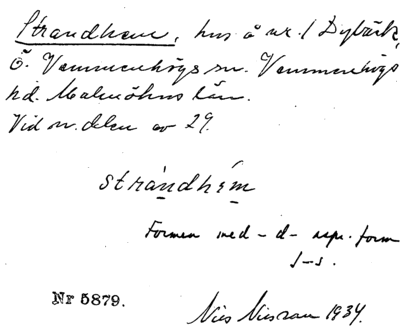 Strandhem, hus å nr. 1 Dybäck,
Ö. Vemmenhögs sn. Vemmenhögs
hd. Malmöhus län.
Vid n. delen av 29.
strandhem
Formen med -d- uspr. form
Nr 5879.
Nils 1934.